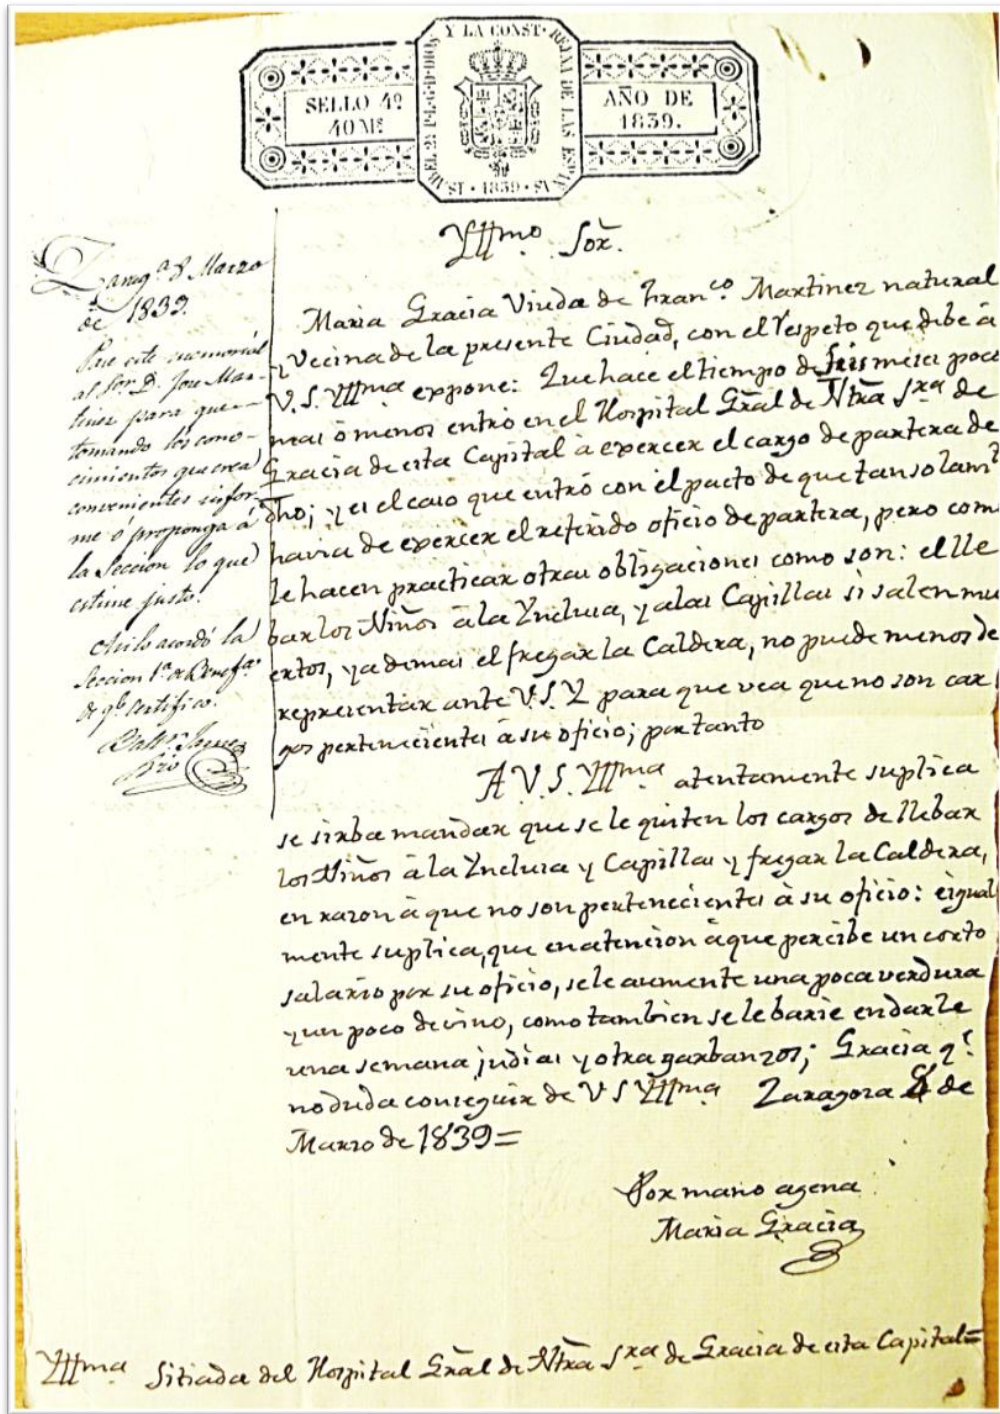 SELLO 4º
40 Mˢ
YSABEL 2ª P.L.G.D.DIOS Y LA CONST. REYNA DE LAS ESPAÑAS
1839
AÑO DE
1839.
Yllmo. Sor.
Zaragª. 8 Marzo
de 1839.
Pase este memorial
al Sor. D. Jose Mar-
tinez para que
tomando los cono-
cimientos que crea
convenientes infor-
me ó proponga á
la Seccion lo que
estime justo.
Asi lo acordó la
Seccion 1ª de Benefª
de qe. certifico.
Maria Gracia Viuda de Franco. Martinez natural
y Vecina de la presente Ciudad, con el respeto que debe á
V. S. Yllma. expone: Que hace el tiempo de seis meses poco
mas ó menos entró en el Hospital Gral de Ntra Sra. de
Gracia de esta Capital á exercer el cargo de partera de
dho; y es el caso que entró con el pacto de que tan solamte
havia de exercer el referido oficio de partera, pero com
le hacen practicar otras obligaciones como son: el lle
bar los Niños á la Ynclusa, y a las Capillas si salen mu
ertos, y ademas el fregar la Caldera, no puede menos de
representar ante V. S. Y. para que vea que no son car
gos pertenecientes á su oficio; por tanto
A V. S. Yllma. atentamente suplica
se sirba mandar que se le quiten los cargos de llebar
los Niños á la Ynclusa y Capillas y fregar la Caldera,
en razon á que no son pertenecientes á su oficio: eigual
mente suplica, que en atencion á que percibe un corto
salario por su oficio, se le aumente una poca verdura
y un poco de vino, como tambien se le barie en darle
una semana judias y otra garbanzos; Gracia qe.
no duda conseguir de V S Yllma. Zaragoza de
Marzo de 1839=
Por mano agena
Maria Gracia
Yllma. Sitiada del Hospital Gral de Ntra Sra. de Gracia de esta Capital=